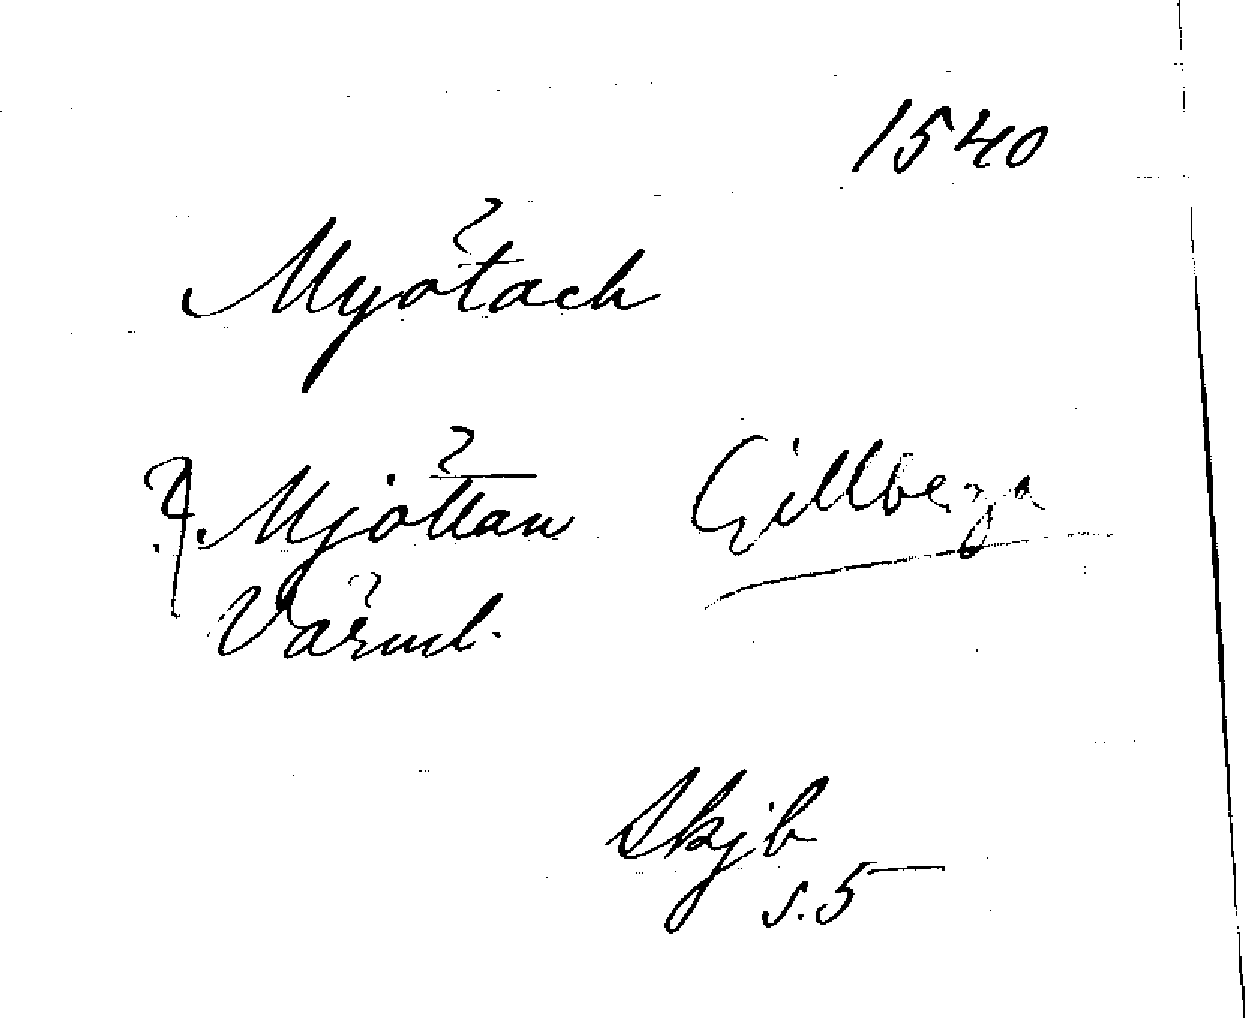 1540
Myötach
?. Mjöttan Gillberga
Värml.
Skjb
s. 5